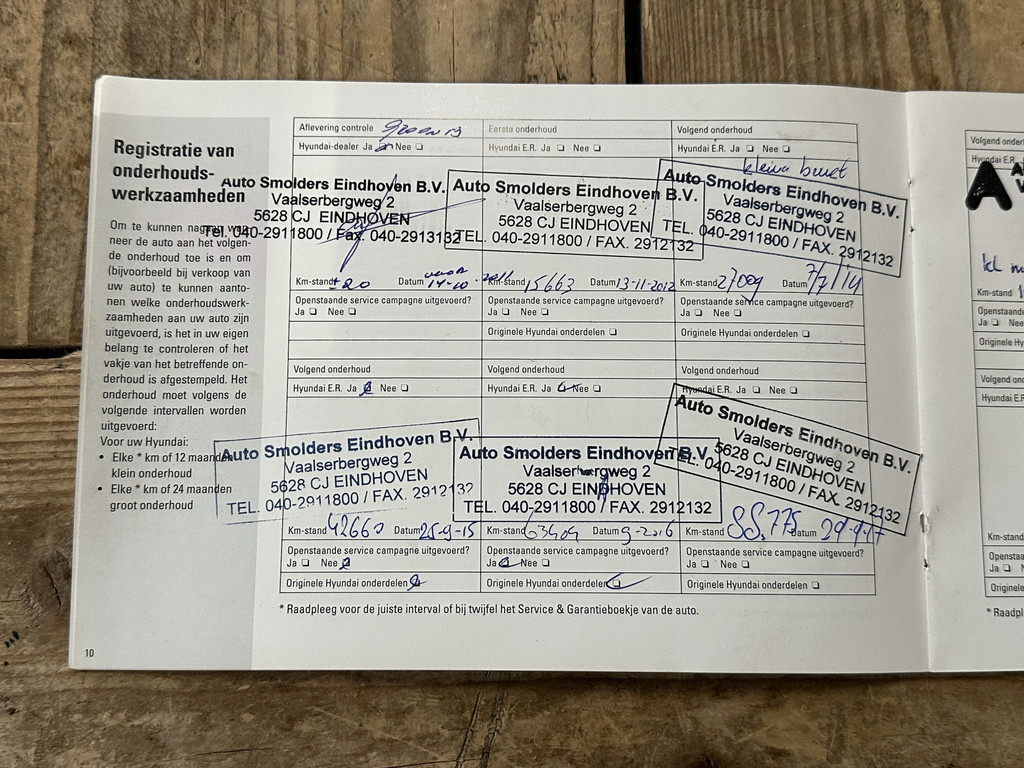 Registratie van
onderhouds-
werkzaamheden
Om te kunnen
neer de auto aan het volgen-
de onderhoud toe is en om
(bijvoorbeeld bij verkoop van
uw auto) te kunnen aanto-
nen welke onderhoudswerk-
zaamheden aan uw auto zijn
uitgevoerd, is het in uw eigen
belang te controleren of het
vakje van het betreffende on-
derhoud is afgestempeld. Het
onderhoud moet volgens de
volgende intervallen worden
uitgevoerd:
Voor uw Hyundai:
• Elke * km of 12 maanden
klein onderhoud
• Elke * km of 24 maanden
groot onderhoud
10
Aflevering controle
Hyundai-dealer Ja Nee
Auto Smolders Eindhoven B.V.
Vaalserbergweg 2
5628 CJ EINDHOVEN
Tel. 040-2911800 / Fax. 040-2913132
Km-stand ±20 Datum 14-10-2011
Openstaande service campagne uitgevoerd?
Ja Nee
Eerste onderhoud
Hyundai E.R. Ja Nee
Auto Smolders Eindhoven B.V.
Vaalserbergweg 2
5628 CJ EINDHOVEN
TEL. 040-2911800 / FAX. 2912132
Km-stand 15663 Datum 13-11-2012
Openstaande service campagne uitgevoerd?
Ja Nee
Originele Hyundai onderdelen
Volgend onderhoud
Hyundai E.R. Ja Nee
kleine beurt
Auto Smolders Eindhoven B.V.
Vaalserbergweg 2
5628 CJ EINDHOVEN
TEL. 040-2911800 / FAX. 2912132
Km-stand Datum 7/7/14
Openstaande service campagne uitgevoerd?
Ja Nee
Originele Hyundai onderdelen
Volgend onderhoud
Hyundai E.R. Ja Nee
Auto Smolders Eindhoven B.V.
Vaalserbergweg 2
5628 CJ EINDHOVEN
TEL. 040-2911800 / FAX. 2912132
Km-stand 42660 Datum 25-9-15
Openstaande service campagne uitgevoerd?
Ja Nee
Originele Hyundai onderdelen
Volgend onderhoud
Hyundai E.R. Ja Nee
Auto Smolders Eindhoven B.V.
Vaalserbergweg 2
5628 CJ EINDHOVEN
TEL. 040-2911800 / FAX. 2912132
Km-stand 63404 Datum 9-2016
Openstaande service campagne uitgevoerd?
Ja Nee
Originele Hyundai onderdelen
Volgend onderhoud
Hyundai E.R. Ja Nee
Auto Smolders Eindhoven B.V.
Vaalserbergweg 2
5628 CJ EINDHOVEN
TEL. 040-2911800 / FAX. 2912132
Km-stand 88.775 Datum
Openstaande service campagne uitgevoerd?
Ja Nee
Originele Hyundai onderdelen
* Raadpleeg voor de juiste interval of bij twijfel het Service & Garantieboekje van de auto.
Volgend
Hyundai E.R.
A
kl
Km-stand
Openstaande
Ja Nee
Originele
Volgend
Hyundai E.R.
Km-stand
Ja Nee
Originele